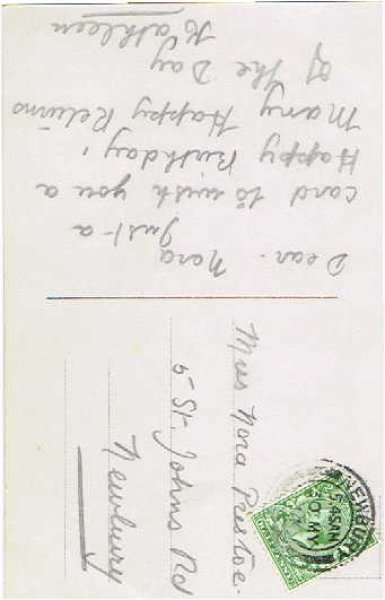 Dear. Nora
Just a
card to wish you a
Happy Birthday,
Many Happy Returns
of the Day
Kathleen
Miss Nora
5 St. Johns Rd
Newbury
NEWBURY
MY